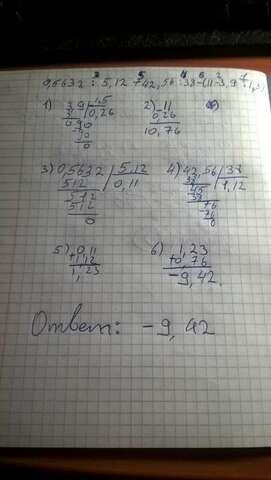 0,5632 : 5,12 + 42,56 : 38 - (11 - 3,9 : 1,5)
1) 3,9 | 1,5
0,26
90
90
0
2) 11
0,26
10,76
3) 0,5632 | 5,12
512 0,11
512
512
0
4) 42,56 | 38
38 1,12
45
38
76
76
0
5) 0,11
+ 1,12
1,23
6) 1,23
10,76
-9,42.
Ответ: -9,42